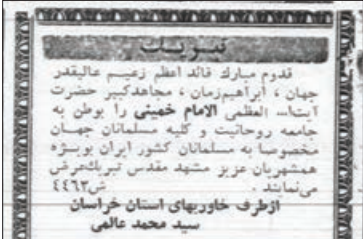 تبریک
قدوم مبارک قائد اعظم زعیم عالیقدر
جهان ، ابراهیم‌زمان ، مجاهدکبیر حضرت
آیت‌ا... العظمی الامام خمینی را بوطن به
جامعه روحانیت و کلیه مسلمانان جهان
مخصوصا به مسلمانان کشور ایران بویژه
همشهریان عزیز مشهد مقدس تبریک‌عرض
می‌نمایند . ش۴۴۶۳
ازطرف خاوریهای استان خراسان
سید محمد عالمی